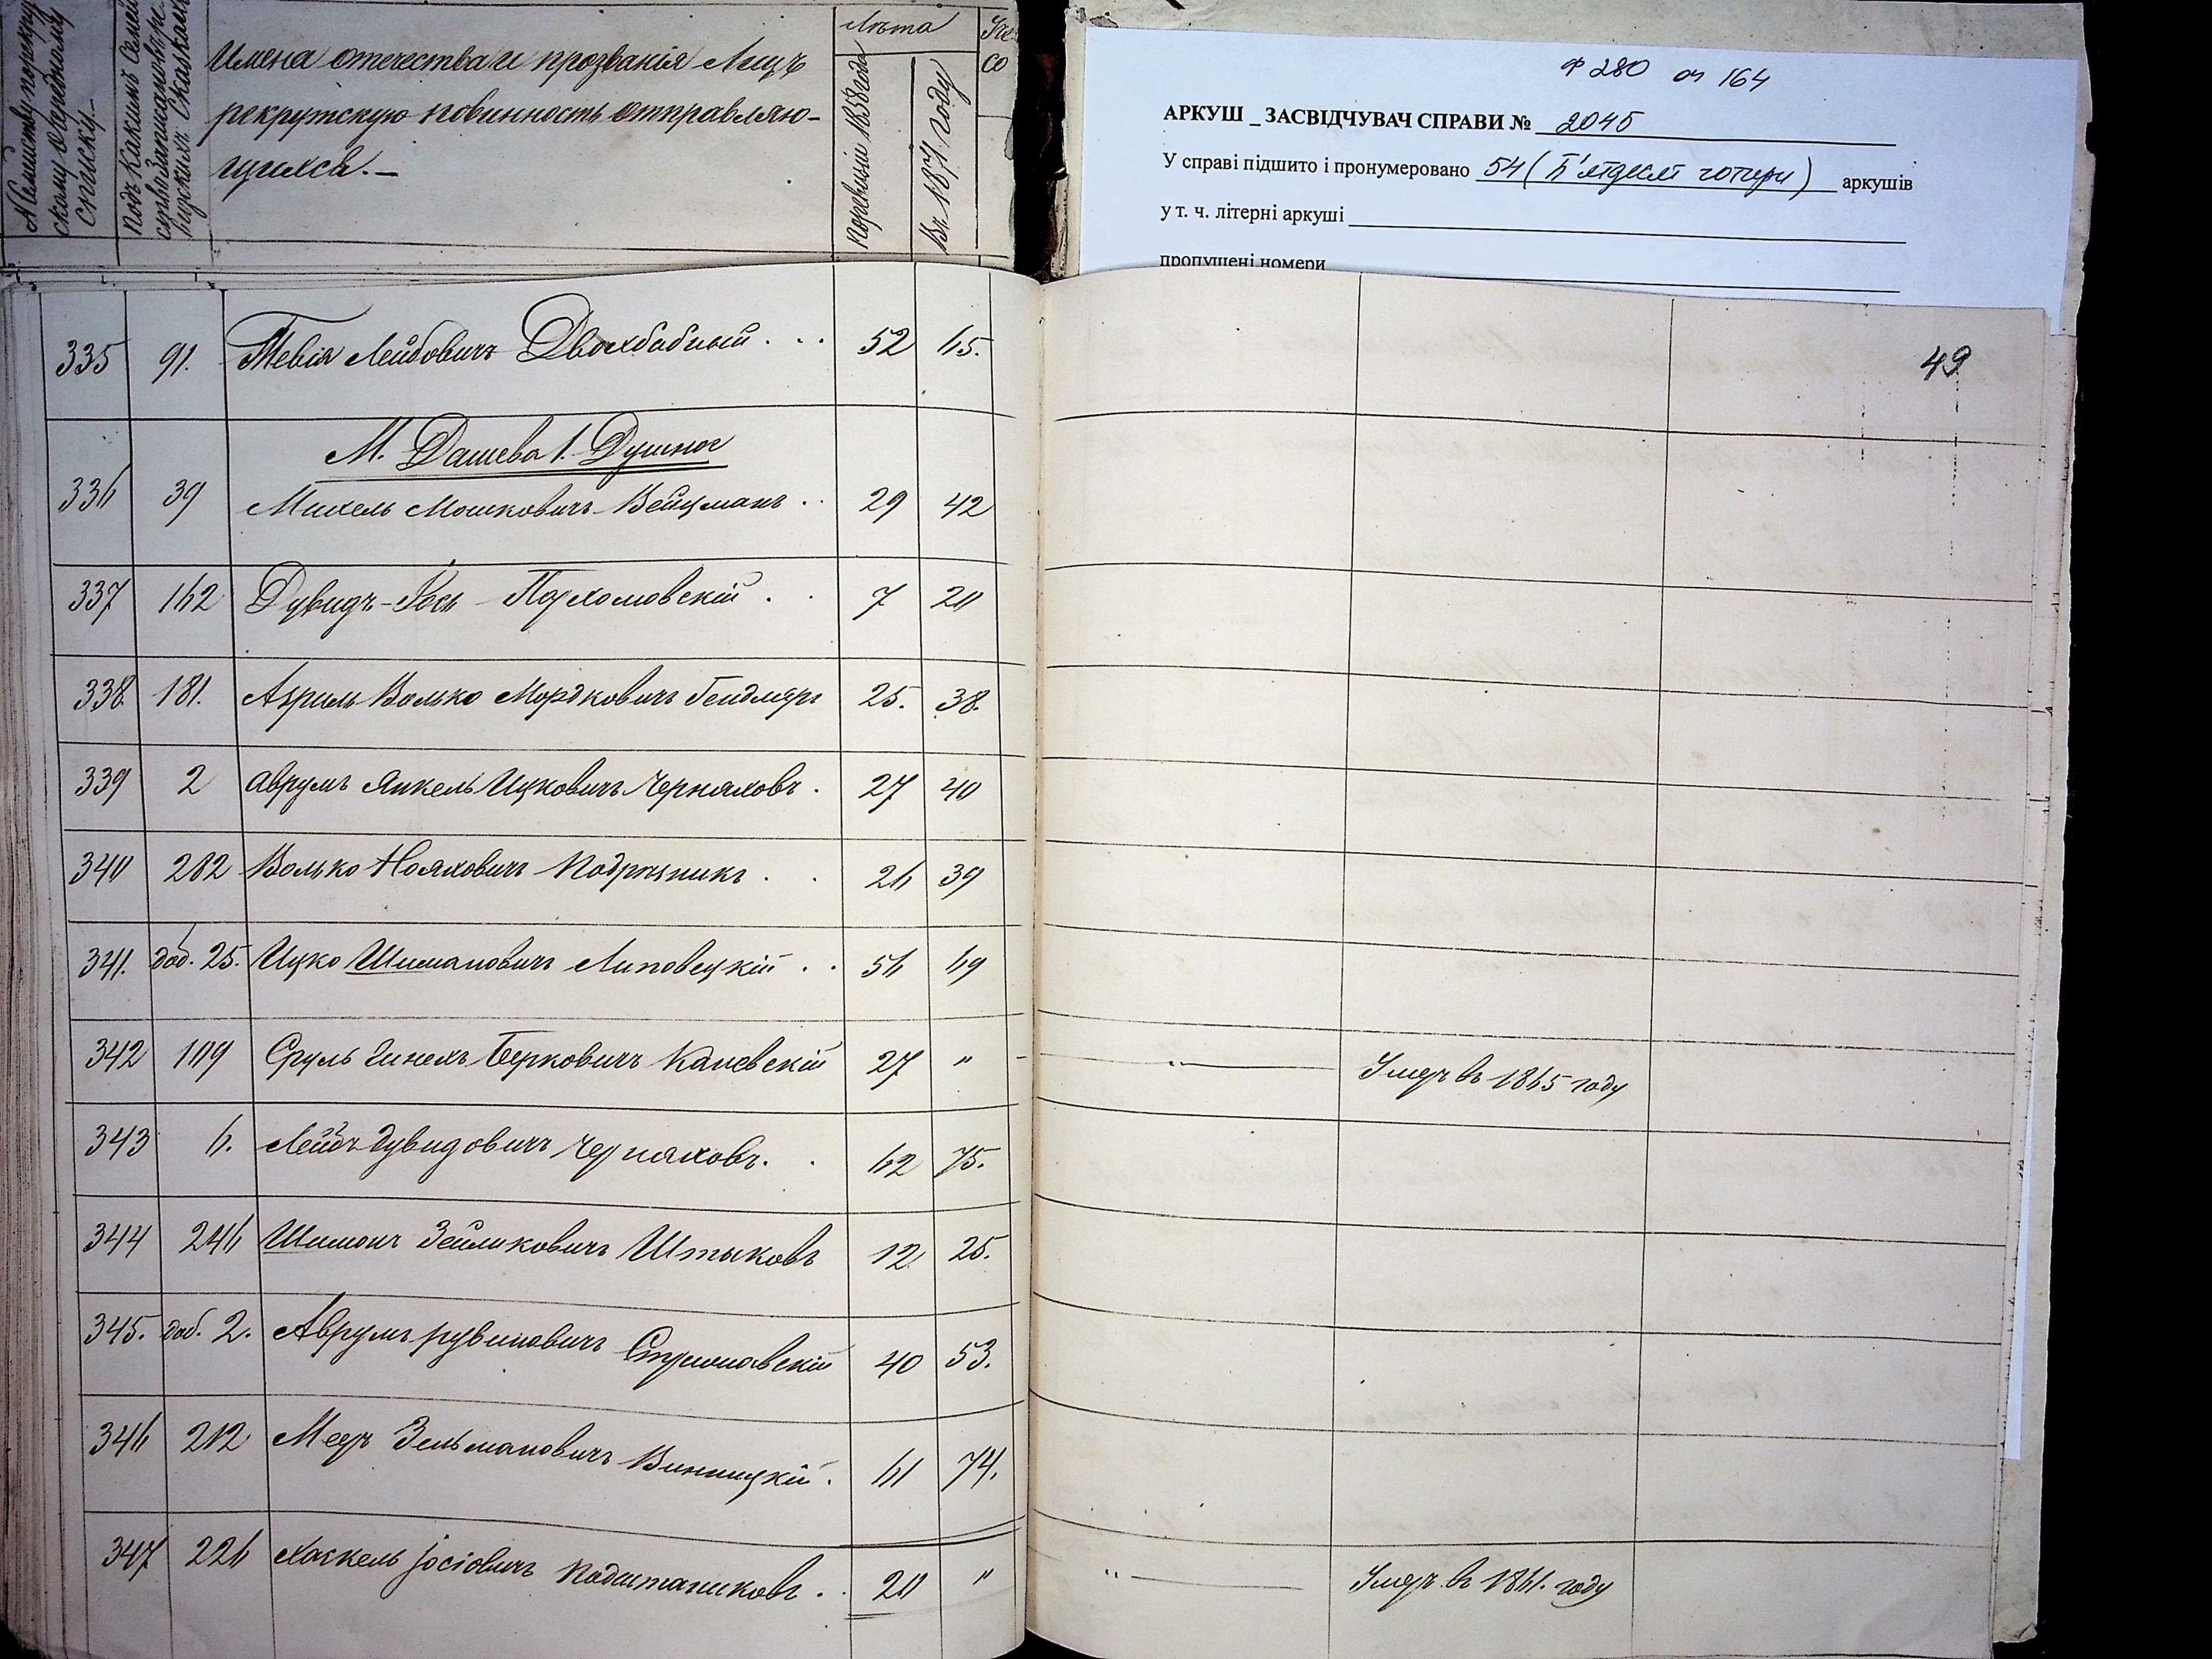 № мѣсту по рекрут-
скому очередному
списку.-
Подъ какимъ семей-
ствомъ записаны въ ре-
визскихъ сказкахъ
Имена отечества и прозванія Лицъ
рекрутскую повинность отправляю-
щихся.-
Лѣта
По ревизіи 1858 года
Въ 1871 году
со
Ф 280 оп 164
АРКУШ _ ЗАСВІДЧУВАЧ СПРАВИ № 2045
У справі підшито і пронумеровано 54 (П'ятдесят чотири) аркушів
у т. ч. літерні аркуші
пропущені номери
49
335 91. Тевія Лейбовичъ Двохбабный . . . 52 65.
М. Дашева 1. Душное
336 39 Михель Мошковичъ Вейцманъ . . 29 42
337 162 Дувидъ-Іось Пархомовскій . . 7 20
338. 181. Азриль Волько Мордковичъ Гендлярь 25. 38.
339 2 Аврумъ Янкель Ицковичъ Черняховъ . 27 40
340 282 Волько Нояховичъ Подрушникъ . . 26 39
341. доб. 25. Ицко Шимановичъ Липовецкій . . 56 69
342 109 Сруль Хинехъ Берковичъ Каневскій 27 " " Умеръ въ 1865 году
343 6. Лейбъ Дувидовичъ Черняховъ. . 62 75.
344 246 Шимонъ Зейликовичъ Штыковъ 12 25.
345. доб. 2. Аврумъ Рувиновичъ Стрижавскій 40 53.
346 212 Мееръ Зельмановичъ Винницкій . 61 74.
347 226 Хаскель Іосіовичъ Подштаниковъ . . 20 " " Умеръ въ 1861. году